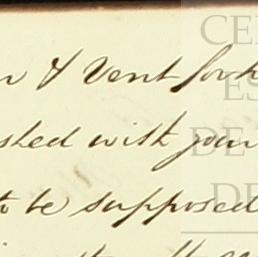 & Vent forth
shed with your
to be supposed
CE
ES
DE
DE